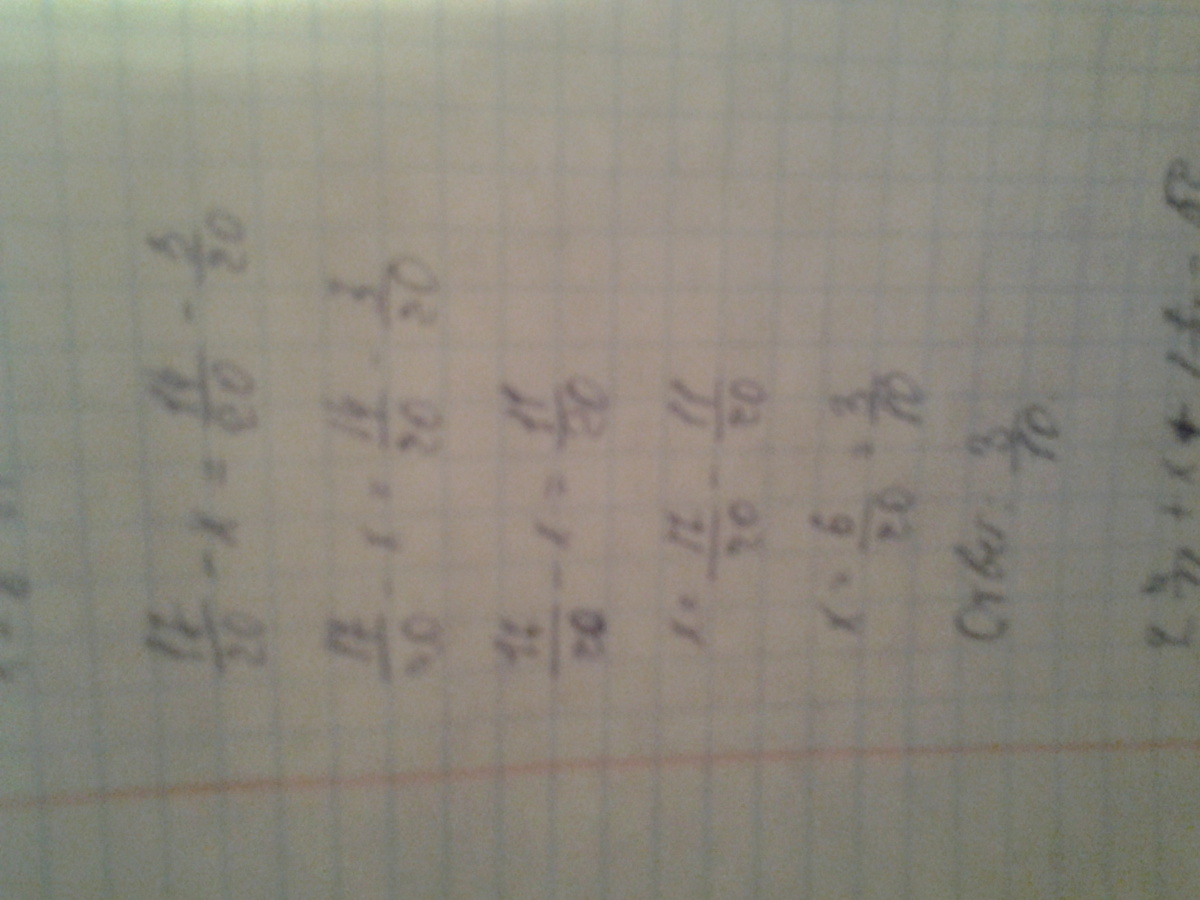 17/20 - x = 14/20 - 3/20
17/20 - x = 14/20 - 3/20
17/20 - x = 11/20
x = 17/20 - 11/20
x = 6/20 = 3/10
Ответ: 3/10